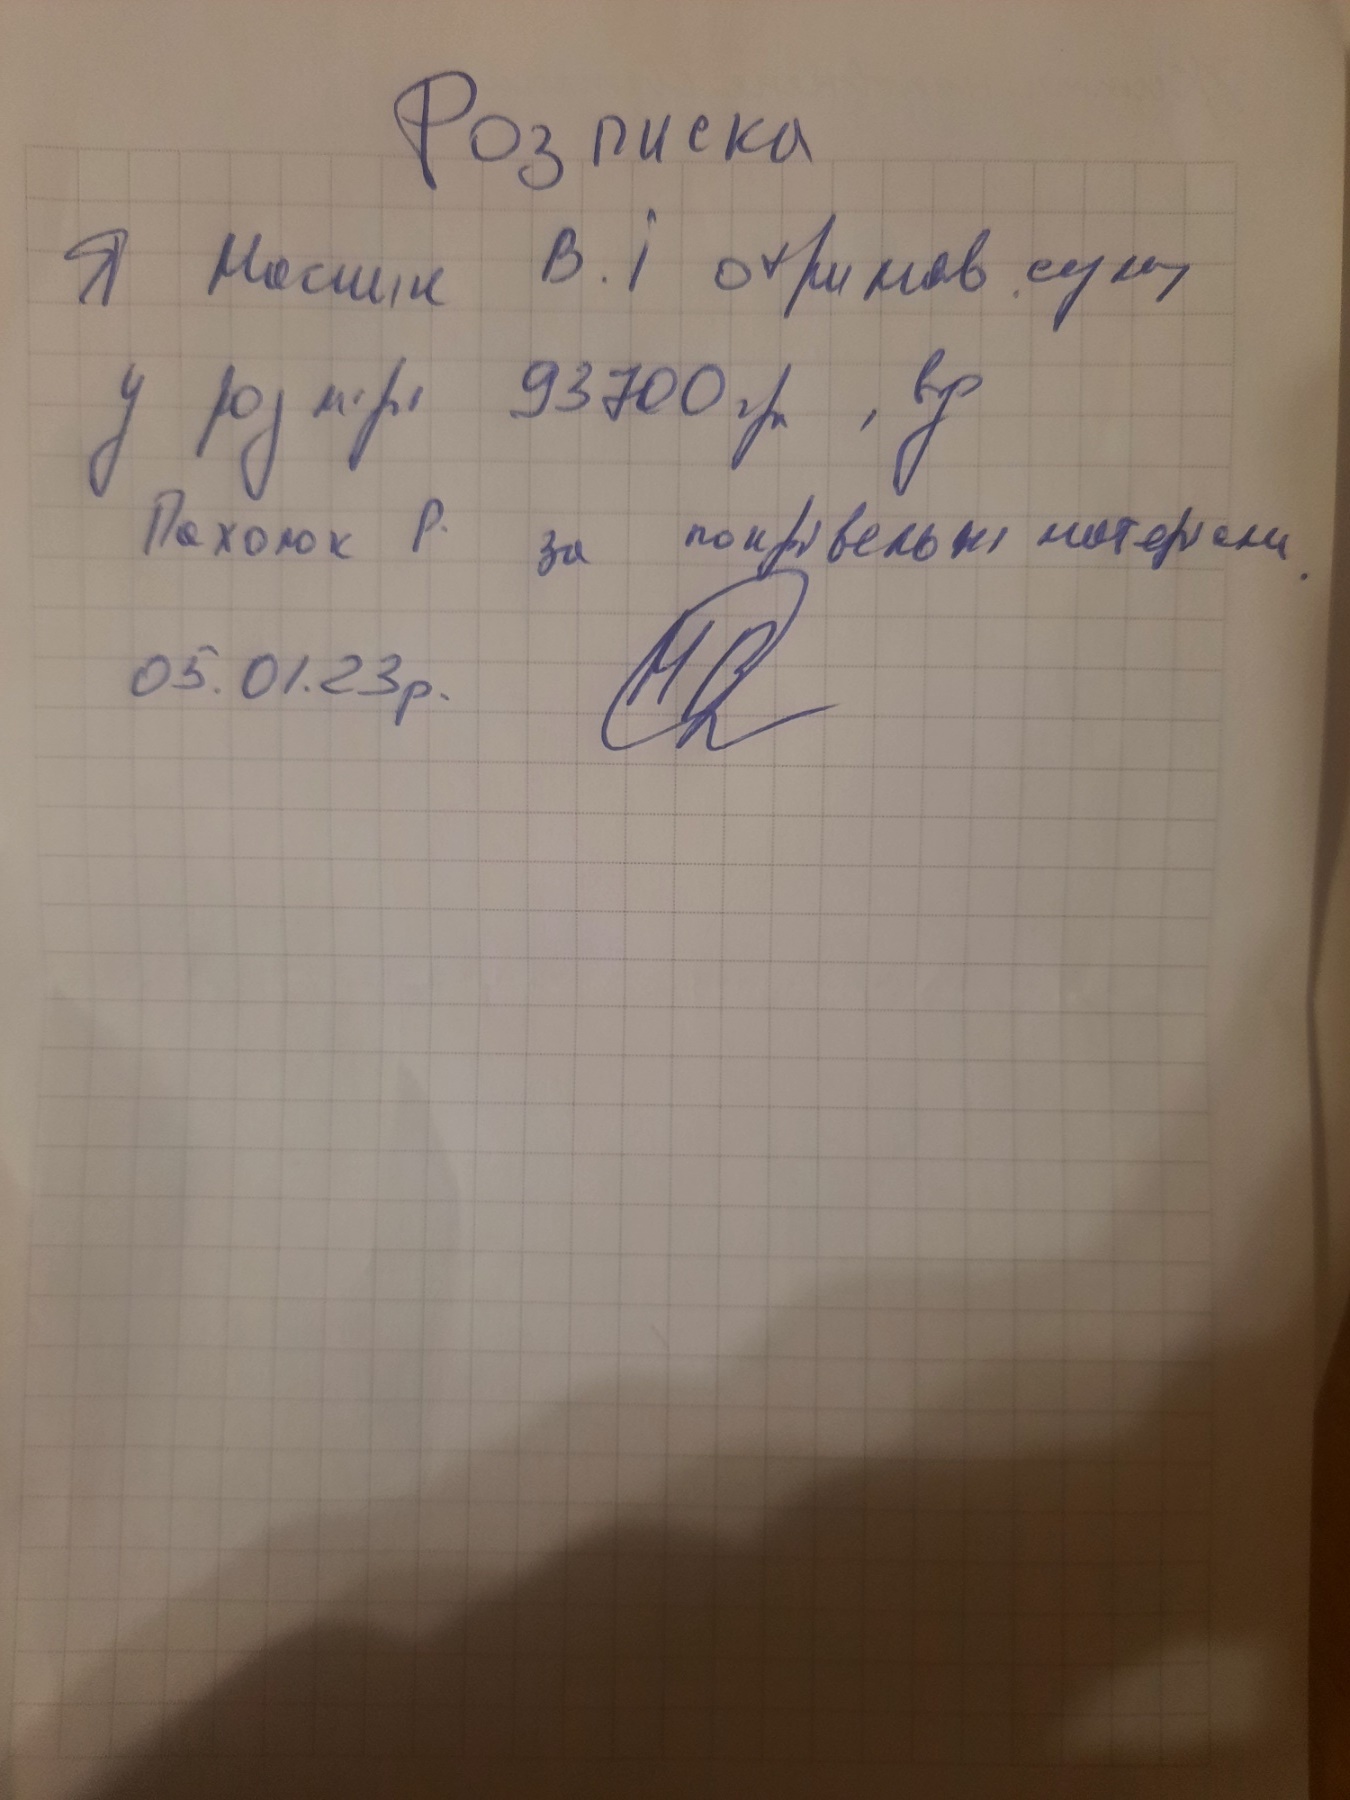 Розписка
Я В. І отримав суму
у розмірі 93700 грн, від
Пахолюк Р. за покрівельні матеріали.
05.01.23р.